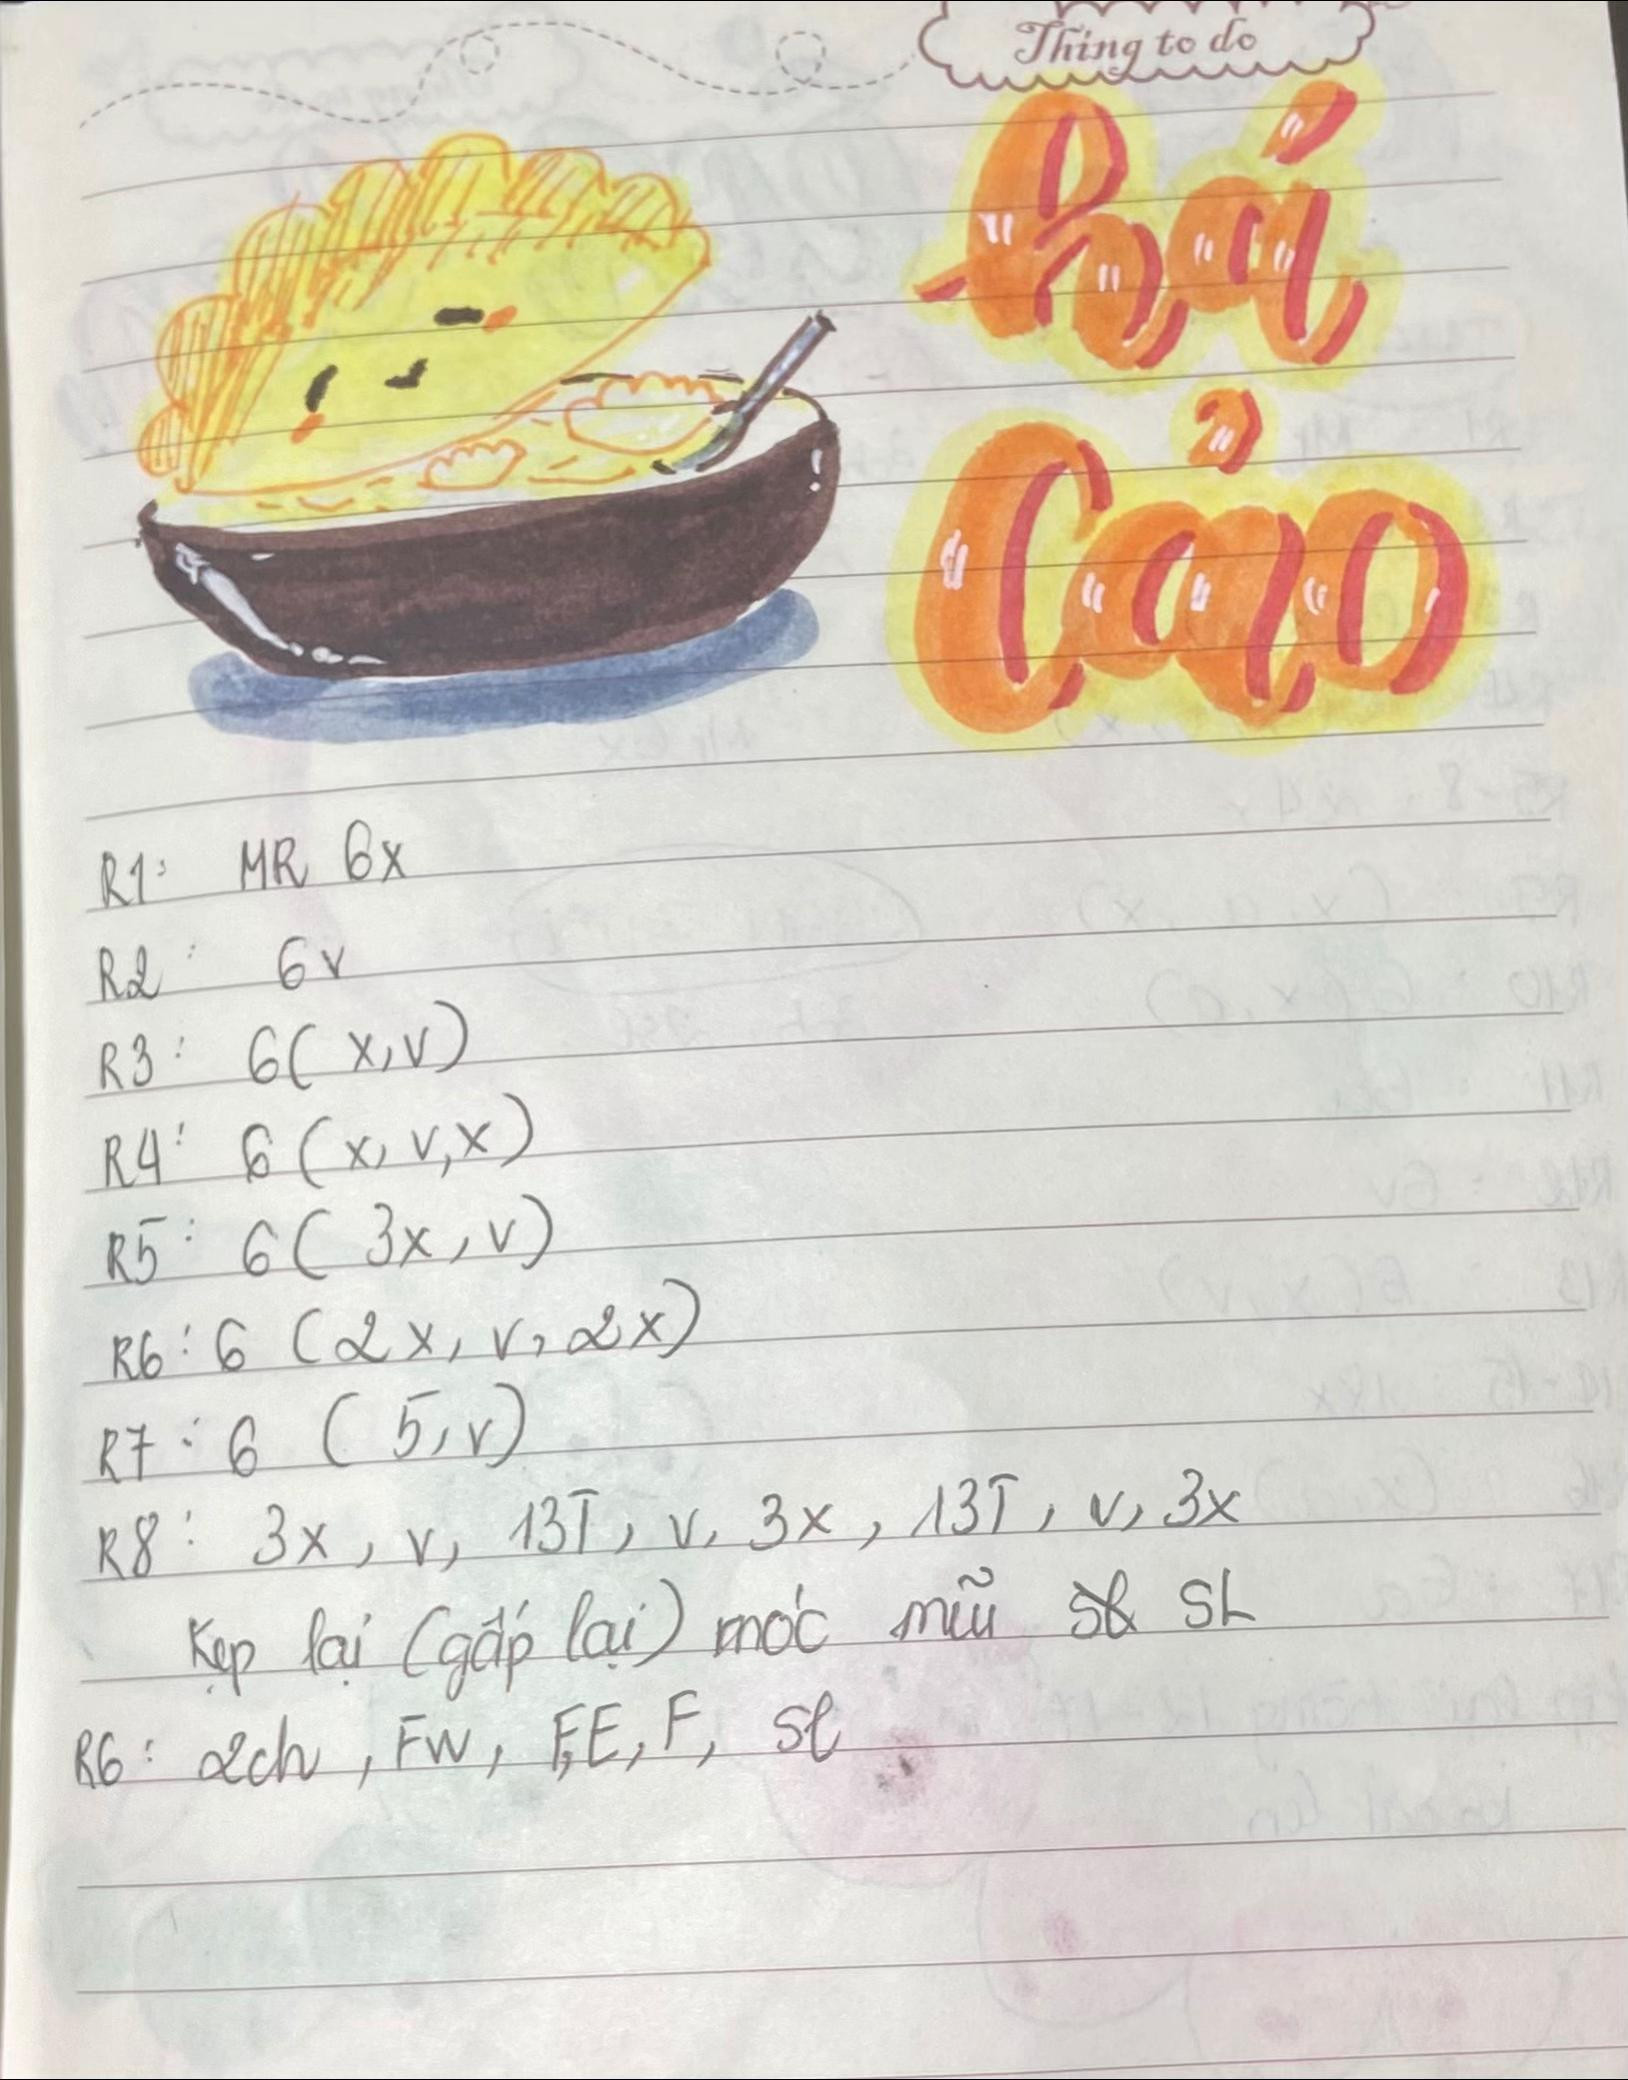 Thing to do
há
Cảo
R1: MR 6x
R2: 6v
R3: 6(x,v)
R4: 6(x,v,x)
R5: 6(3x,v)
R6: 6(2x,v,2x)
R7: 6(5,v)
R8: 3x, v, 13T, v, 3x, 13T, v, 3x
Kẹp lại (gấp lại) móc mũi SL
R6: 2ch, FW, F,E, F, Sl